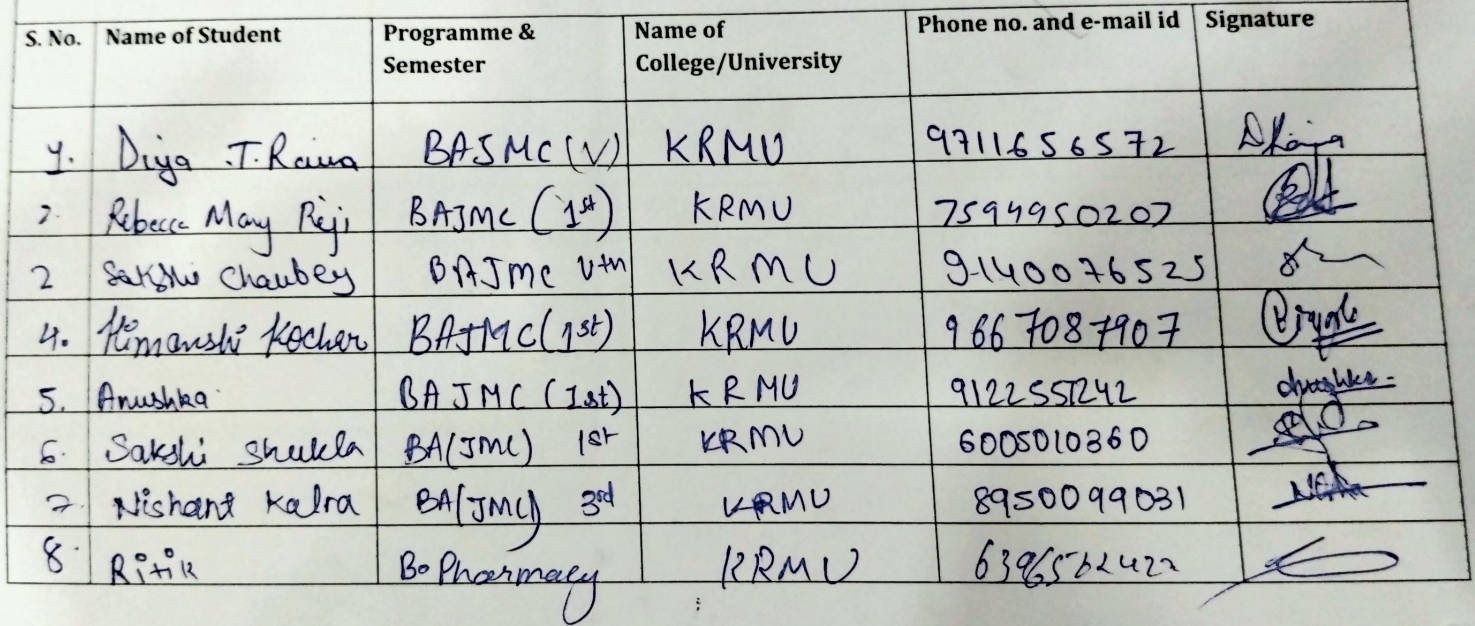 S. No. Name of Student Programme & Semester Name of College/University Phone no. and e-mail id Signature
1. Diya .T. Raina BAJMC (V) KRMU 9711656572 DRaina
2. Rebecca Mary Reji BAJMC (1st) KRMU 7594950207
2 Sakshi Chaubey BAJMC Vth KRMU 9140076525
4. Himanshi Kocher BAJMC (1st) KRMU 9667087907
5. Anushka BAJMC (1st) KRMU 9122551242 Anushka
6. Sakshi Shukla BA(JMC) 1st KRMU 6005010360
7. Nishant Kalra BA(JMC) 3rd KRMU 8950099031
8. Ritik B. Pharmacy KRMU